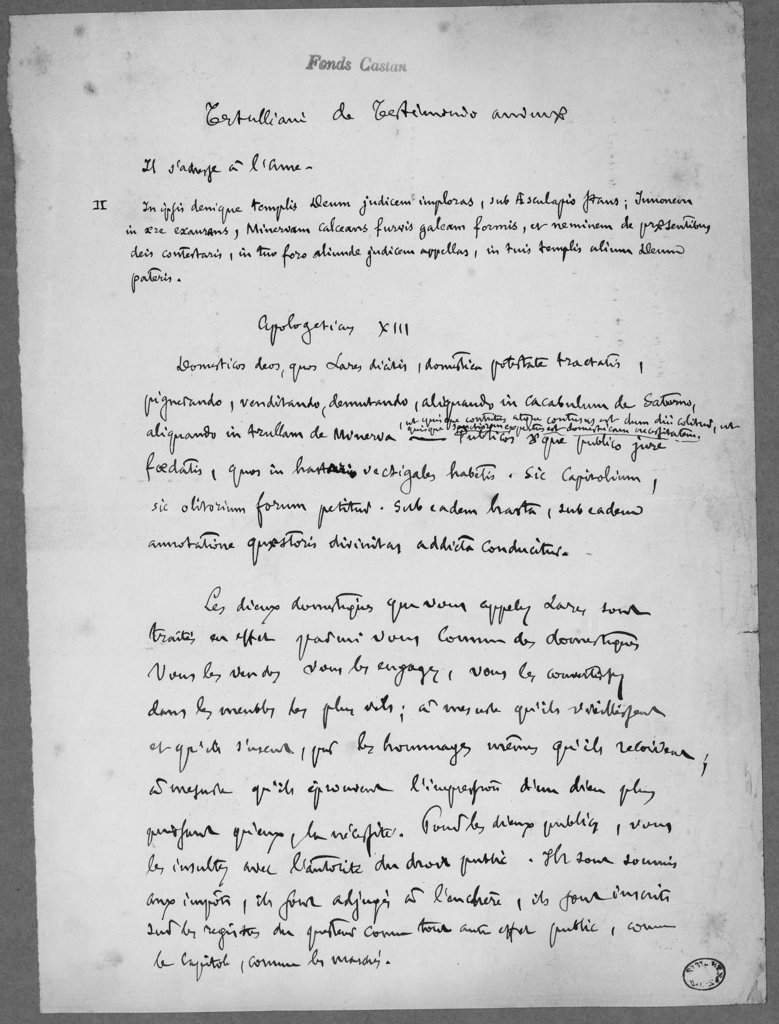 Fonds Castan
Tertulliani de Testimonio animæ
Il s'adresse à l'ame -
II In ipsis denique templis Deum judicem imploras, sub Æsculapio stans; Iunonem
in ære exaurans, Minervam calceans furvis galeam formis, et neminem de præsentibus
deis contestaris, in tuo foro aliunde judicem appellas, in tuis templis alium Deum
pateris.
Apologeticus XIII
Domesticos deos, quos Lares dicitis, domestica potestate tractatis,
pignerando, venditando, demutando, aliquando in cacabulum de Saturno,
, ut quisque contritus atque contusus est dum diu colitur, ut
aliquando in trullam de Minerva
quisque sanctiorem expertus est domesticam necessitatem.
Publicos æque publico jure
fœdatis, quos in vectigales habetis. Sic Capitolium,
sic olitorium forum petitur. Sub eadem hasta, sub eadem
annotatione quæstoris divinitas addicta conducitur.
Les dieux domestiques que vous appelez Lares sont
traités en effet parmi vous comme des domestiques
Vous les vendez vous les engagez, vous les convertissez
dans les meubles les plus vils; à mesure qu'ils vieillissent
et qu'ils s'usent, par les hommages mêmes qu'ils reçoivent;
à mesure qu'ils éprouvent l'impression d'un dieu plus
puissant qu'eux, la nécessité. Pour les dieux publics, vous
les insultez avec l'autorité du droit public. Ils sont soumis
aux impôts, ils sont adjugés à l'enchère, ils sont inscrits
sur les registres du questeur comme tout autre effet public, comme
le Capitole, comme les marchés.